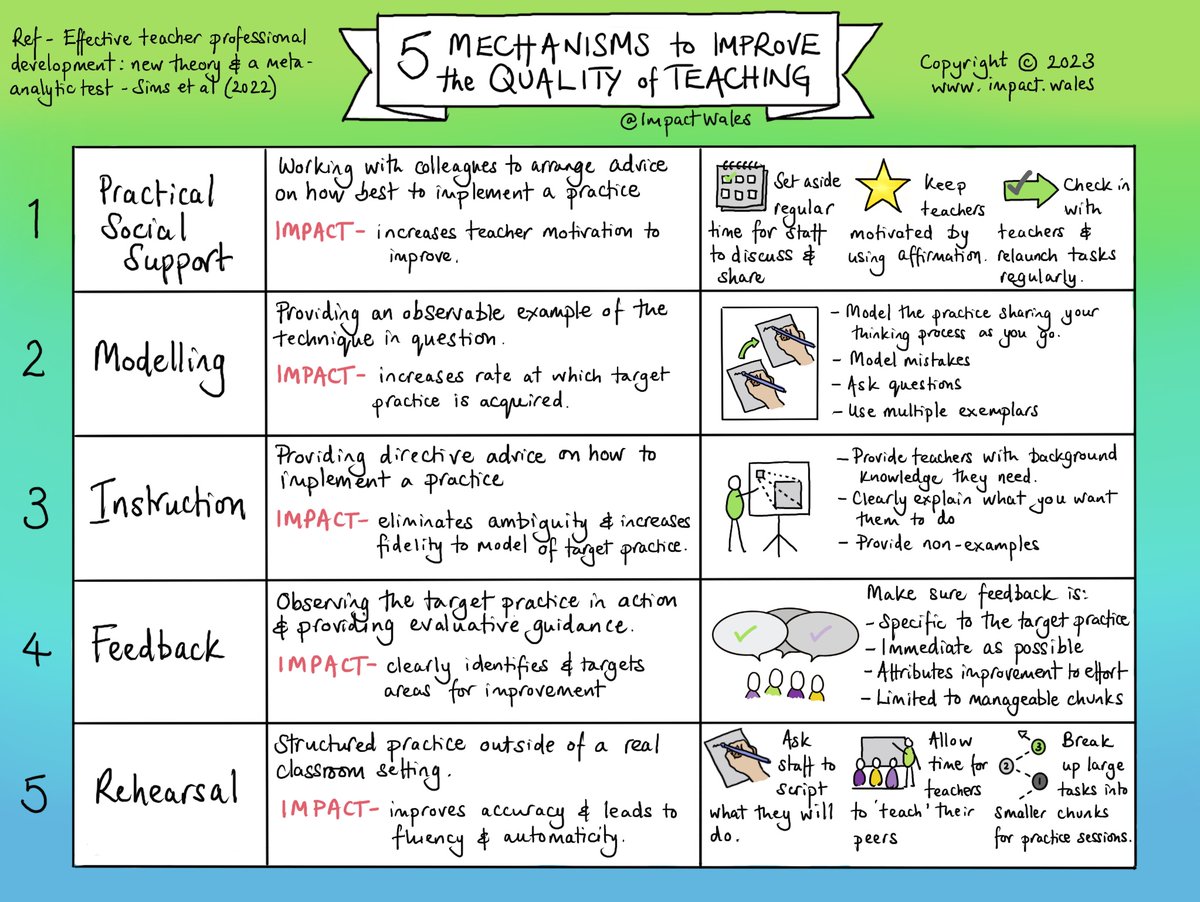 Ref - Effective teacher professional
development: new theory & a meta-
analytic test - Sims et al (2022)
5 MECHANISMS to IMPROVE
the QUALITY of TEACHING
@ImpactWales
Copyright © 2023
www.impact.wales
1
Practical
Social
Support
Working with colleagues to arrange advice
on how best to implement a practice
IMPACT- increases teacher motivation to
improve.
Set aside
regular
time for staff
to discuss &
share
Keep
teachers
motivated by
using affirmation.
Check in
with
teachers &
relaunch tasks
regularly.
2
Modelling
Providing an observable example of the
technique in question.
IMPACT- increases rate at which target
practice is acquired.
- Model the practice sharing your
thinking process as you go.
- Model mistakes
- Ask questions
- Use multiple exemplars
3
Instruction
Providing directive advice on how to
implement a practice
IMPACT- eliminates ambiguity & increases
fidelity to model of target practice.
- Provide teachers with background
knowledge they need.
- Clearly explain what you want
them to do
- Provide non-examples
4
Feedback
Observing the target practice in action
& providing evaluative guidance.
IMPACT- clearly identifies & targets
areas for improvement
Make sure feedback is:
- Specific to the target practice
- Immediate as possible
- Attributes improvement to effort
- Limited to manageable chunks
5
Rehearsal
Structured practice outside of a real
classroom setting.
IMPACT- improves accuracy & leads to
fluency & automaticity.
Ask
staff to
script
what they will
do.
Allow
time for
teachers
to 'teach' their
peers
3
2
1
Break
up large
tasks into
smaller chunks
for practice sessions.